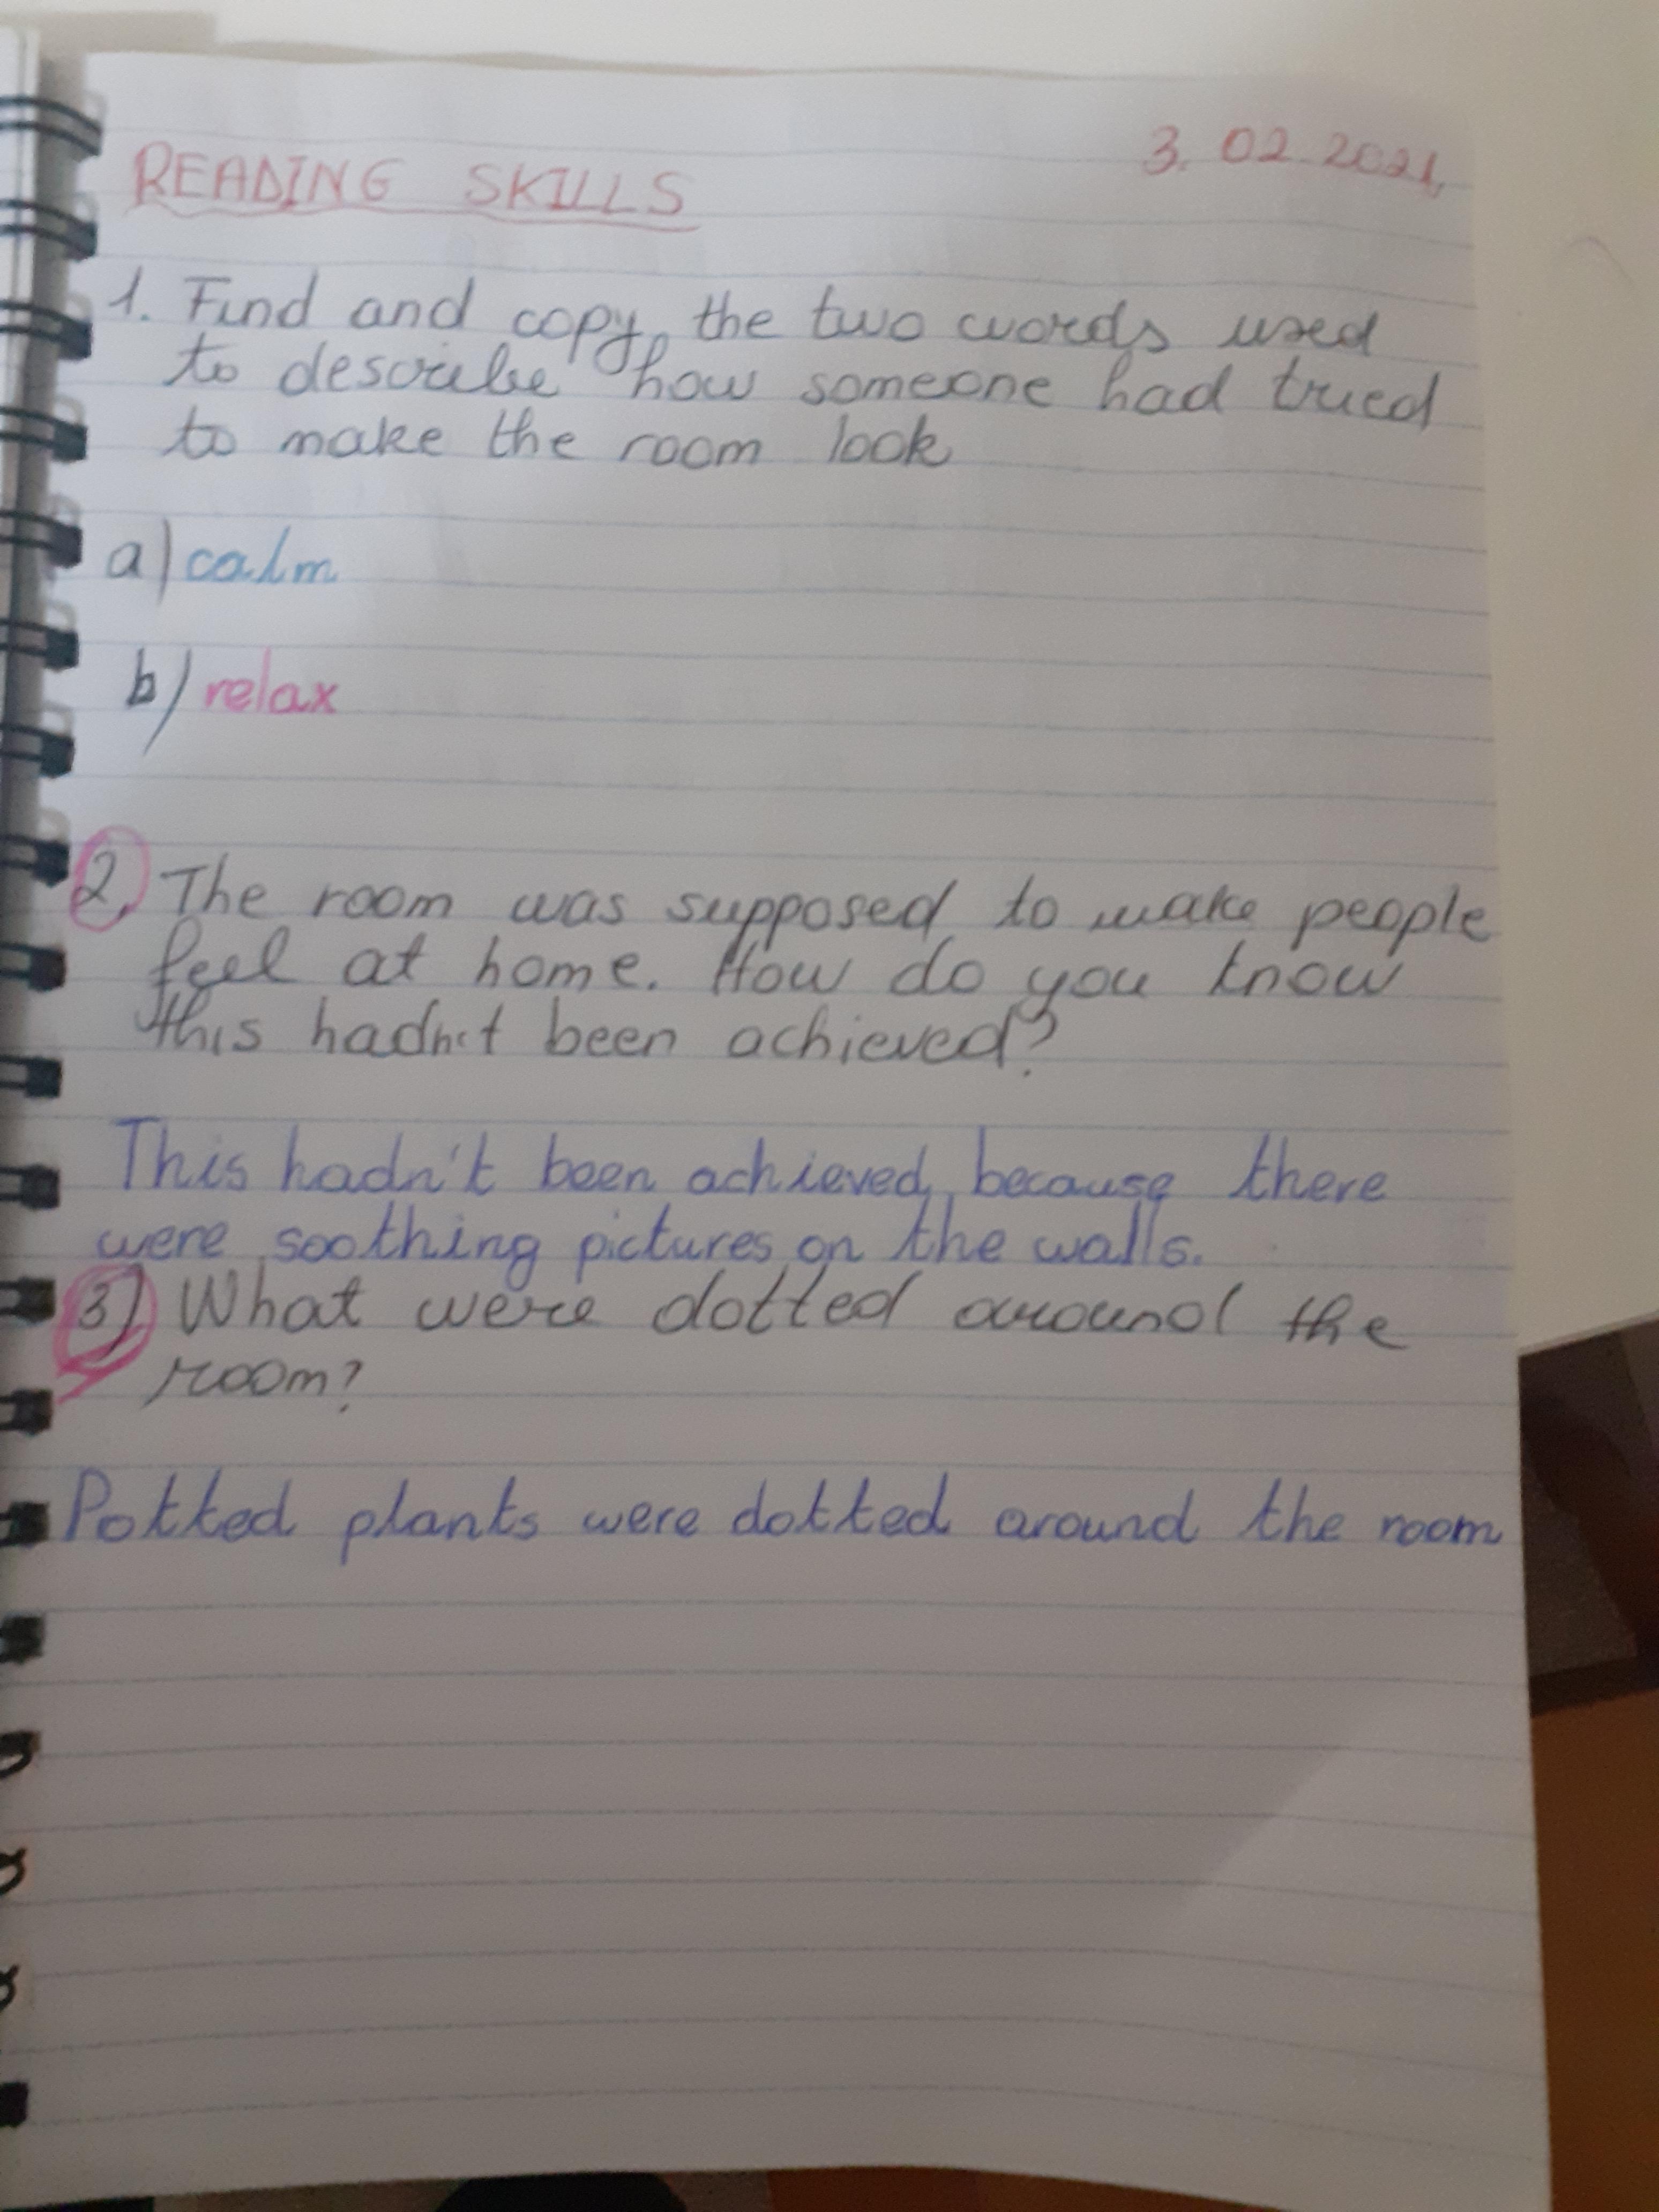 READING SKILLS
3. 02 2021,
1. Find and copy, the two words used
to describe how someone had tried
to make the room look
a) calm
b) relax
2. The room was supposed to make people
feel at home. How do you know
this hadn't been achieved?
This hadn't been achieved, because there
were soothing pictures on the walls.
3) What were dotted around the
room?
Potted plants were dotted around the room